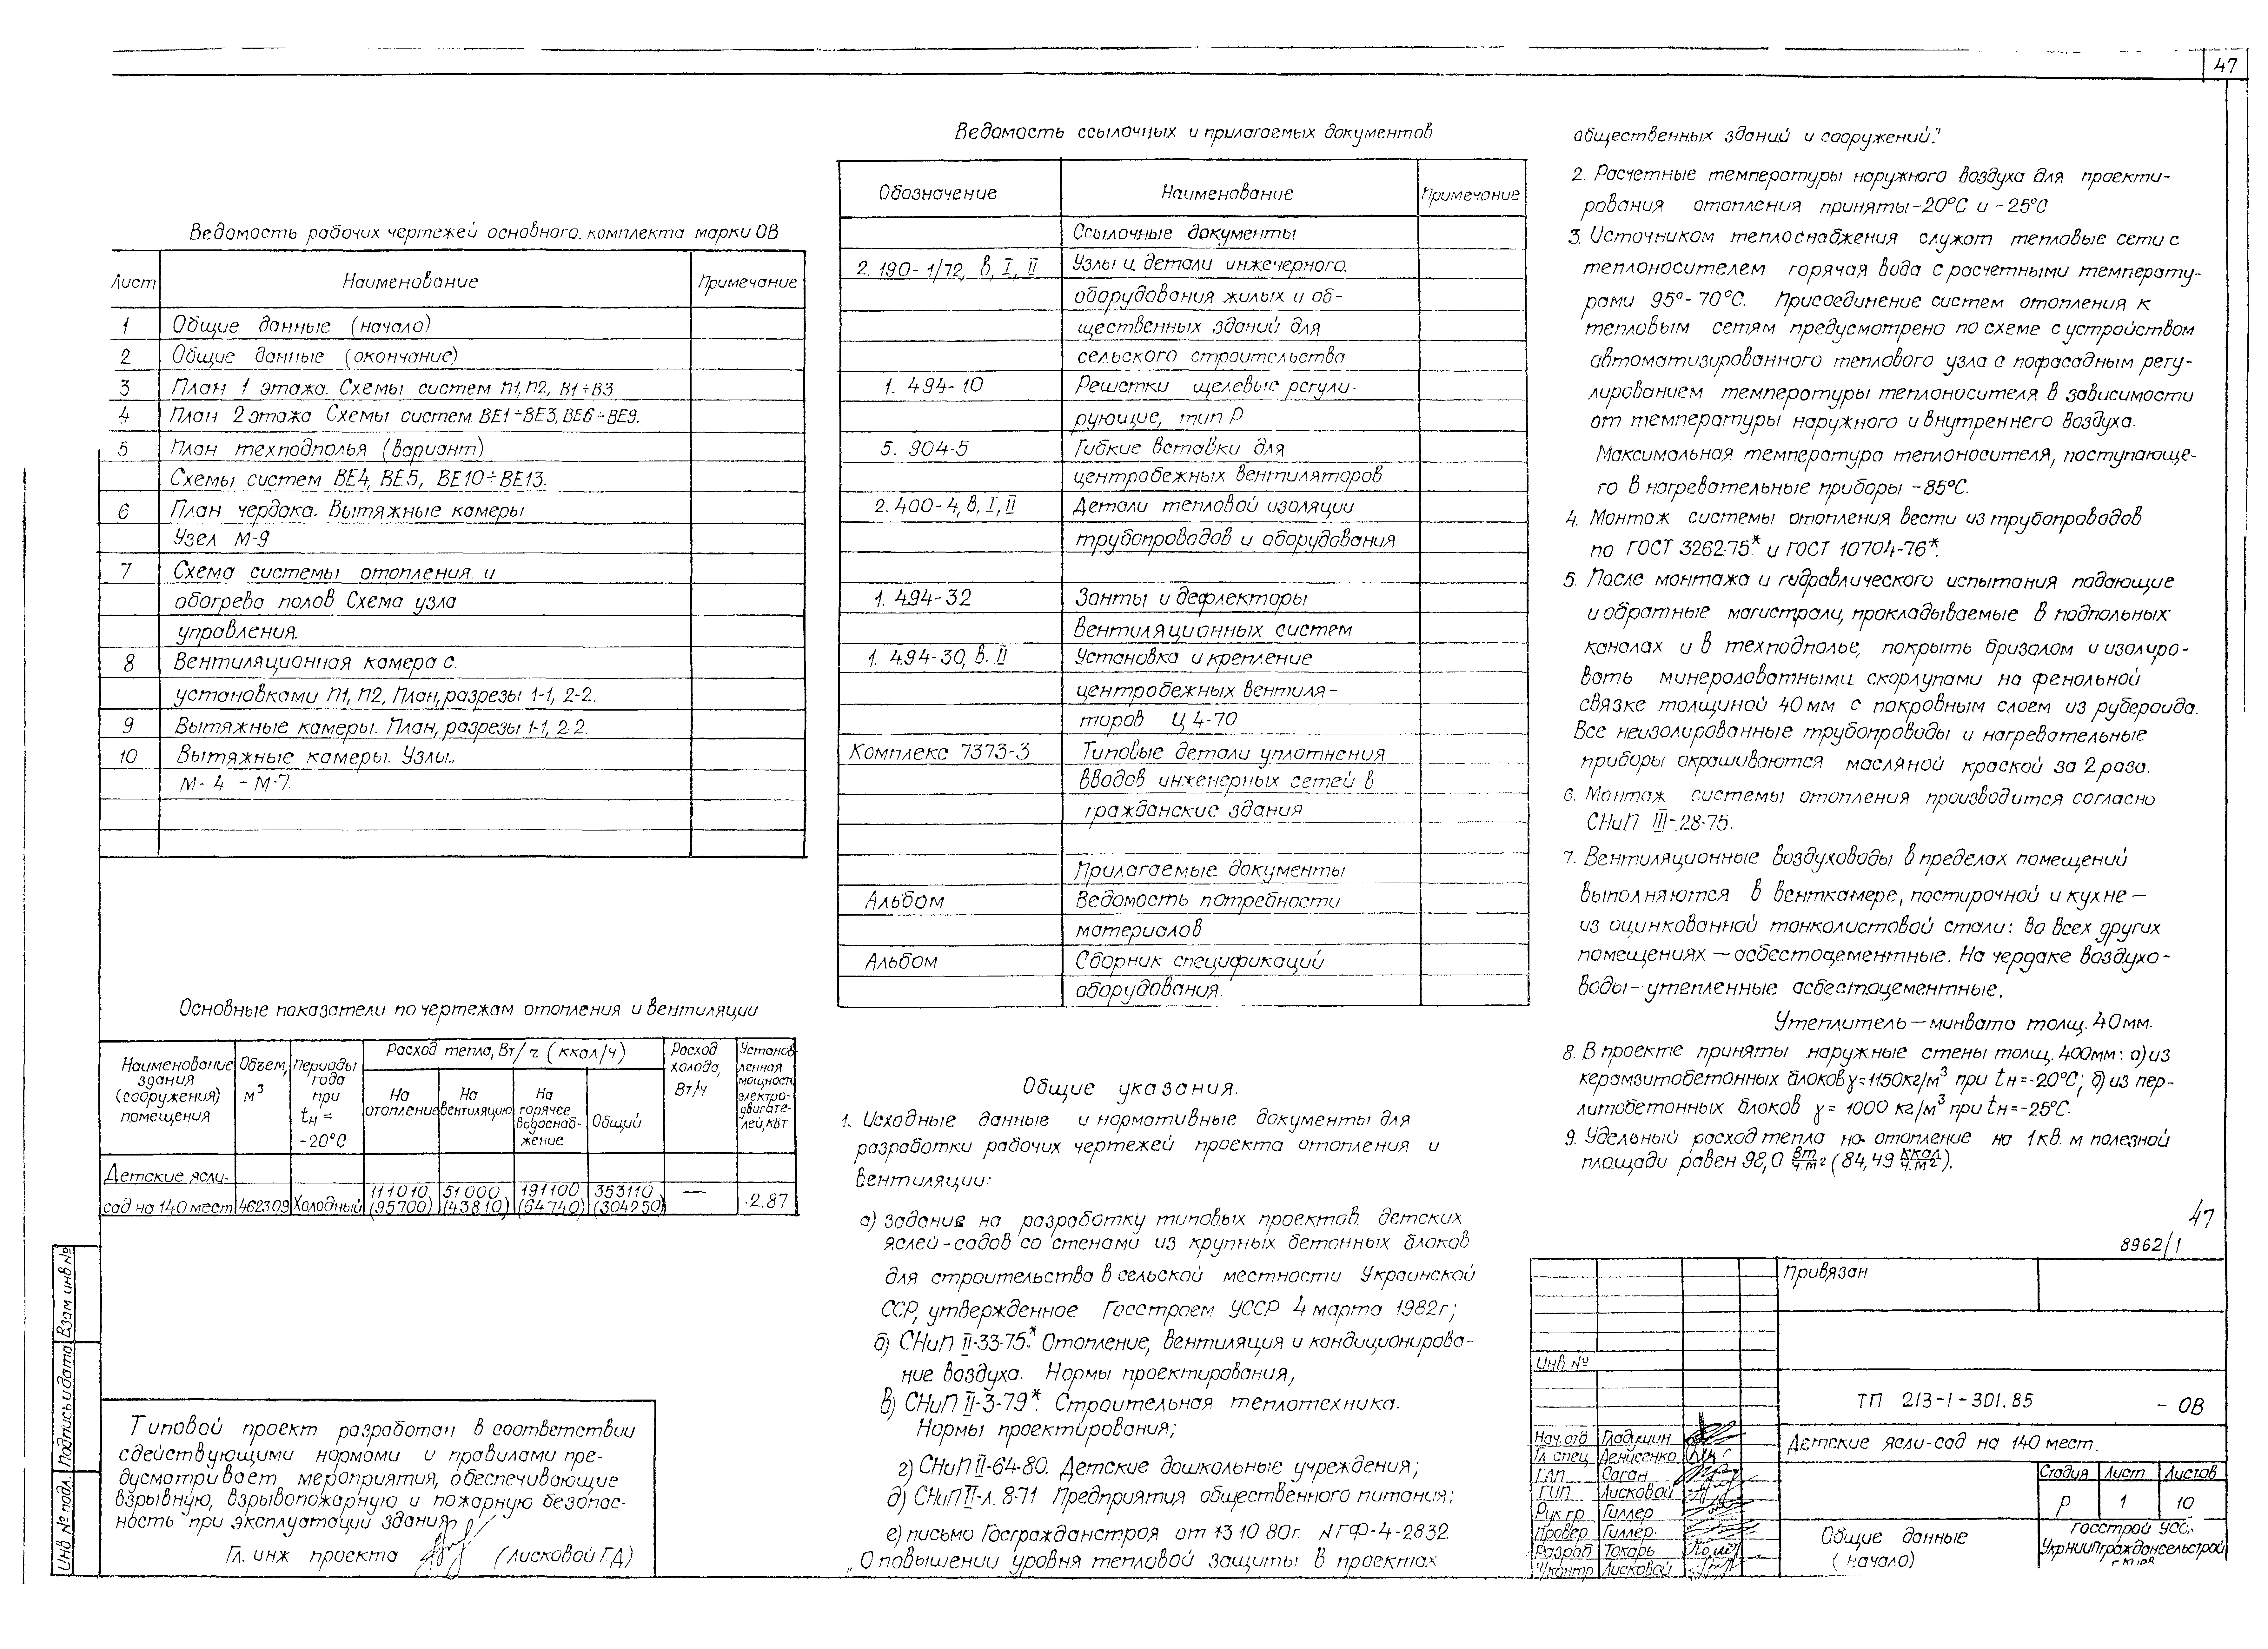 47
Ведомость рабочих чертежей основного комплекта марки ОВ
Лист Наименование Примечание
1 Общие данные (начало)
2 Общие данные (окончание)
3 План 1 этажа. Схемы систем П1, П2, В1÷В3
4 План 2 этажа Схемы систем ВЕ1÷ВЕ3, ВЕ6÷ВЕ9.
5 План техподполья (вариант)
Схемы систем ВЕ4, ВЕ5, ВЕ10÷ВЕ13.
6 План чердака. Вытяжные камеры
Узел М-9
7 Схема системы отопления и
обогрева полов Схема узла
управления.
8 Вентиляционная камера с.
установками П1, П2, План, разрезы 1-1, 2-2.
9 Вытяжные камеры. План, разрезы 1-1, 2-2.
10 Вытяжные камеры. Узлы.
М-4 – М-7.
Основные показатели по чертежам отопления и вентиляции
Наименование здания (сооружения) помещения
Объем, м³
Периоды года при tн = -20°С
Расход тепла, Вт/ч (ккал/ч)
На отопление
На вентиляцию
На горячее водоснаб-жение
Общий
Расход холода, Вт/ч
Установ-ленная мощность электро-двигате-лей, кВт
Детские ясли-
сад на 140 мест 462309 Холодный 111010 (95700) 51000 (43810) 191100 (64740) 353110 (304250) — 2.87
Взам инв №
Подпись и дата
Инв № подл.
Типовой проект разработан в соответствии
сдействующими нормами и правилами пре-
дусматривает мероприятия, обеспечивающие
взрывную, взрывопожарную и пожарную безопас-
ность при эксплуатации здания
Гл. инж проекта (Лисковой Г.Д)
Ведомость ссылочных и прилагаемых документов
Обозначение Наименование Примечание
Ссылочные документы
2.190-1/72, в, I, II Узлы и детали инжечерного.
оборудования жилых и об-
щественных зданий для
сельского строительства
1.494-10 Решетки щелевые регули-
рующие, тип Р
5.904-5 Гибкие вставки для
центробежных вентиляторов
2.400-4, в, I, II Детали тепловой изоляции
трубопроводов и оборудования
1.494-32 Зонты и дефлекторы
вентиляционных систем
1.494-30, в. II Установка и крепление
центробежных вентиля-
торов Ц4-70
Комплекс 7373-3 Типовые детали уплотнения
вводов инженерных сетей в
гражданские здания
Прилагаемые документы
Альбом Ведомость потребности
материалов
Альбом Сборник спецификаций
оборудования.
Общие указания.
1. Исходные данные и нормативные документы для
разработки рабочих чертежей проекта отопления и
вентиляции:
а) задание на разработку типовых проектов детских
яслей-садов со стенами из крупных бетонных блоков
для строительства в сельской местности Украинской
ССР, утвержденное Госстроем УССР 4 марта 1982г;
б) СНиП II-33-75*. Отопление, вентиляция и кондициониро-ва-
ние воздуха. Нормы проектирования,
в) СНиП II-3-79*. Строительная теплотехника.
Нормы проектирования;
г) СНиП II-64-80. Детские дошкольные учреждения;
д) СНиП II-л. 8-71 Предприятия общественного питания;
е) письмо Госгражданстроя от 13 10 80г. №ГФ-4-2832.
„О повышении уровня тепловой защиты в проектах
общественных зданий и сооружений."
2. Расчетные температуры наружного воздуха для проекти-
рования отопления приняты -20°С и -25°С
3. Источником теплоснабжения служат тепловые сети с
теплоносителем горячая вода с расчетными температу-
рами 95°-70°С. Присоединение систем отопления к
тепловым сетям предусмотрено по схеме с устройством
автоматизированного теплового узла с пофасадным регу-
лированием температуры теплоносителя в зависимости
от температуры наружного и внутреннего воздуха.
Максимальная температура теплоносителя, поступающе-
го в нагревательные приборы -85°С.
4. Монтаж системы отопления вести из трубопроводов
по ГОСТ 3262-75* и ГОСТ 10704-76*.
5. После монтажа и гидравлического испытания подающие
и обратные магистрали, прокладываемые в подпольных
каналах и в техподполье, покрыть бризолом и изолиро-
вать минераловатными скорлупами на фенольной
связке толщиной 40мм с покровным слоем из рубероида.
Все неизолированные трубопроводы и нагревательные
приборы окрашиваются масляной краской за 2 раза.
6. Монтаж системы отопления производится согласно
СНиП III-28-75.
7. Вентиляционные воздуховоды в пределах помещений
выполняются в венткамере, постирочной и кухне —
из оцинкованной тонколистовой стали: во всех других
помещениях — асбестоцементные. На чердаке воздухо-
воды — утепленные асбестоцементные.
Утеплитель — минвата толщ. 40мм.
8. В проекте приняты наружные стены толщ. 400мм: а) из
керамзитобетонных блоков γ=1150кг/м³ при tн=-20°С; б) из пер-
литобетонных блоков γ=1000 кг/м³ при tн=-25°С.
9. Удельный расход тепла на отопление на 1кв. м полезной
площади равен 98,0 Вт/ч.м² (84,49 ккал/ч.м²).
47
8962/1
Привязан
Инв №
ТП 213-1-301.85 -ОВ
Детские ясли-сад на 140 мест.
Нач. отд Гладушин
Гл спец Денисенко
ГАП Саган
ГИП Лисковой
Рук гр Гиллер
Провер Гиллер.
Разраб Токарь
Н/контр Лисковой
Стадия Лист Листов
Р 1 10
Общие данные
(начало)
Госстрой УССР
УкрНИИПграждансельстрой
г. Киев